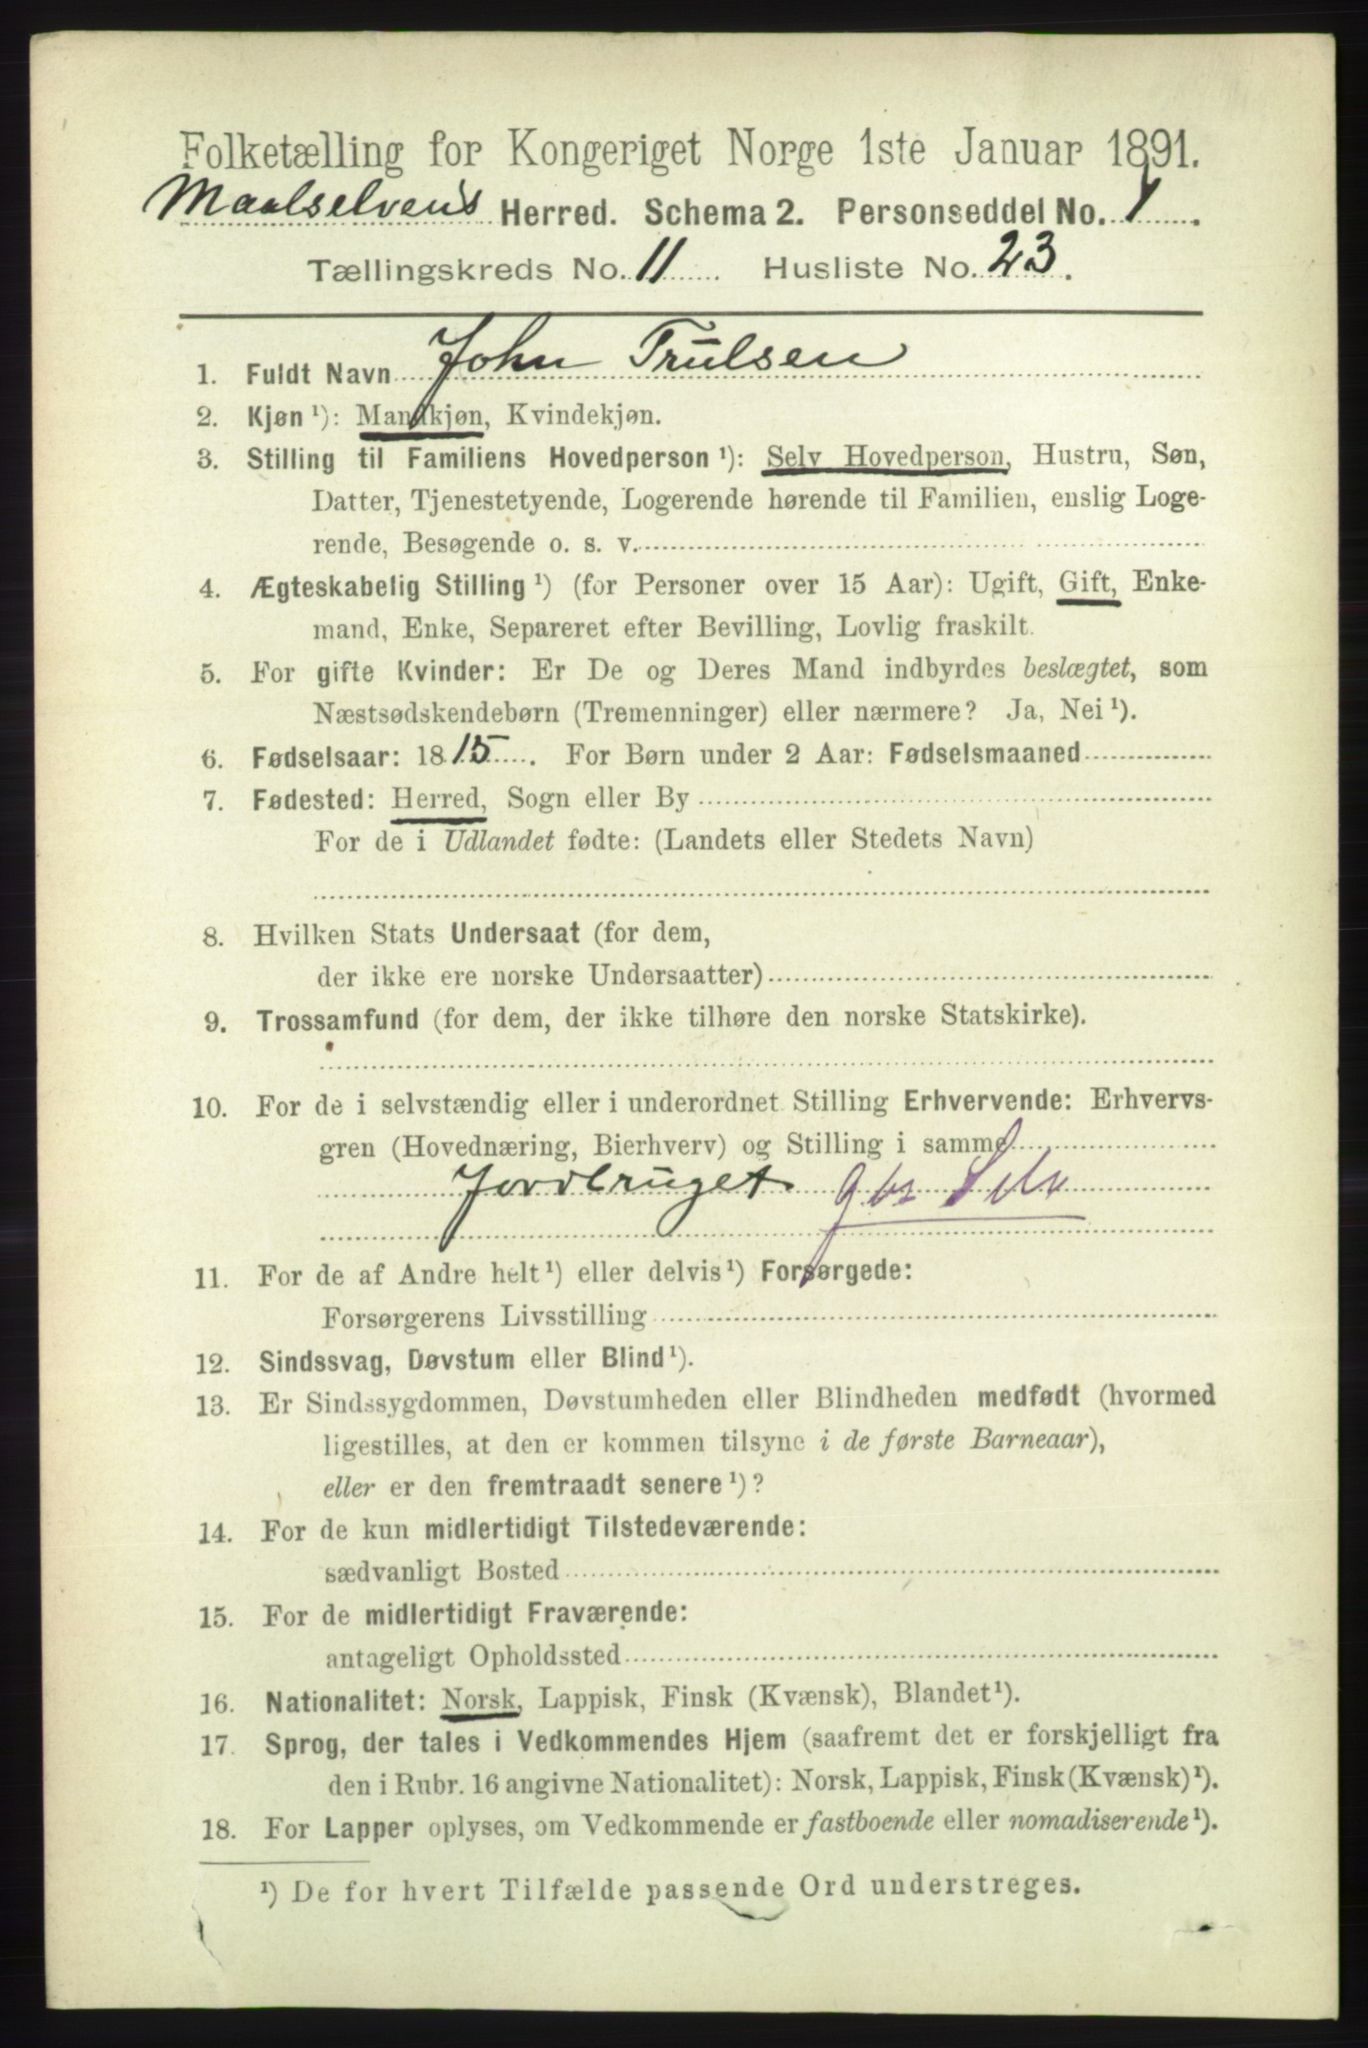 Folketælling for Kongeriget Norge 1ste Januar 1891.
Maalselvens Herred. Schema 2. Personseddel No. 1.
Tællingskreds No. 11 Husliste No. 23.
1. Fuldt Navn John Trulsen
2. Kjøn ¹): Mandkjøn, Kvindekjøn.
3. Stilling til Familiens Hovedperson ¹): Selv Hovedperson, Hustru, Søn,
Datter, Tjenestetyende, Logerende hørende til Familien, enslig Loge-
rende, Besøgende o. s. v.
4. Ægteskabelig Stilling ¹) (for Personer over 15 Aar): Ugift, Gift, Enke-
mand, Enke, Separeret efter Bevilling, Lovlig fraskilt.
5. For gifte Kvinder: Er De og Deres Mand indbyrdes beslægtet, som
Næstsødskendebørn (Tremenninger) eller nærmere? Ja, Nei ¹).
6. Fødselsaar: 1815. For Børn under 2 Aar: Fødselsmaaned
7. Fødested: Herred, Sogn eller By
For de i Udlandet fødte: (Landets eller Stedets Navn)
8. Hvilken Stats Undersaat (for dem,
der ikke ere norske Undersaatter)
9. Trossamfund (for dem, der ikke tilhøre den norske Statskirke).
10. For de i selvstændig eller i underordnet Stilling Erhvervende: Erhvervs-
gren (Hovednæring, Bierhverv) og Stilling i samme
Jordbruget gbr Selv
11. For de af Andre helt ¹) eller delvis ¹) Forsørgede:
Forsørgerens Livsstilling
12. Sindssvag, Døvstum eller Blind ¹).
13. Er Sindssygdommen, Døvstumheden eller Blindheden medfødt (hvormed
ligestilles, at den er kommen tilsyne i de første Barneaar),
eller er den fremtraadt senere ¹)?
14. For de kun midlertidigt Tilstedeværende:
sædvanligt Bosted
15. For de midlertidigt Fraværende:
antageligt Opholdssted
16. Nationalitet: Norsk, Lappisk, Finsk (Kvænsk), Blandet ¹).
17. Sprog, der tales i Vedkommendes Hjem (saafremt det er forskjelligt fra
den i Rubr. 16 angivne Nationalitet): Norsk, Lappisk, Finsk (Kvænsk) ¹).
18. For Lapper oplyses, om Vedkommende er fastboende eller nomadiserende ¹).
¹) De for hvert Tilfælde passende Ord understreges.